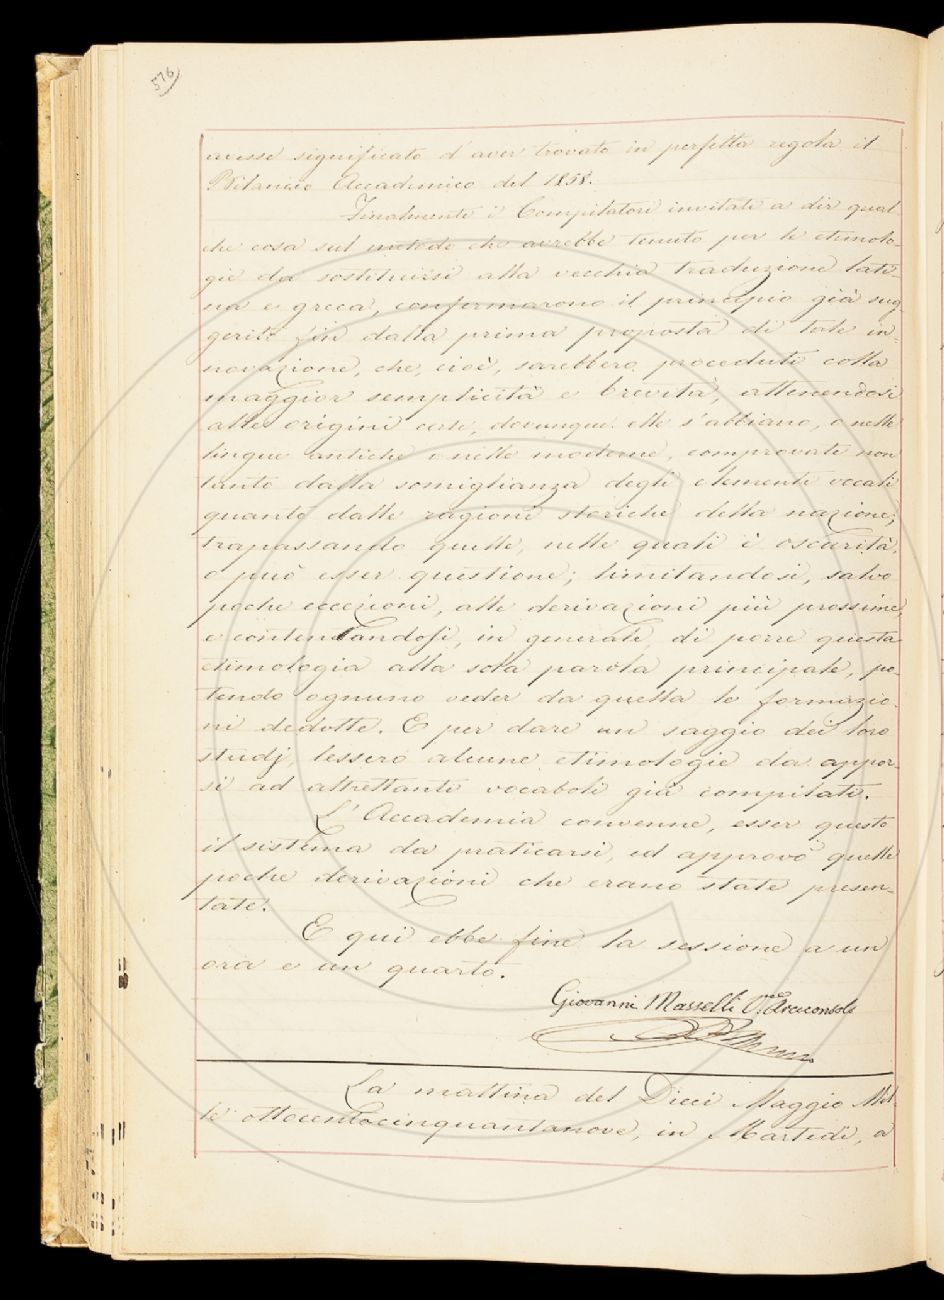 576
avesse significato d'aver trovato in perfetta regola il
Bilancio Accademico del 1858.
Finalmente i Compilatori invitati a dir qual-
che cosa sul metodo che avrebbe tenuto per le etimolo-
gie da sostituirsi alla vecchia traduzione lati-
na e greca, confermarono il principio già sug-
gerito fin dalla prima proposta di tale in-
novazione, che, cioè, sarebbero proceduti colla
maggior semplicità e brevità, attenendosi
alle origini certe, dovunque elle s'abbiano, o nelle
lingue antiche o nelle moderne, comprovate non
tanto dalla somiglianza degli elementi vocali
quanto dalle ragioni storiche della nazione;
trapassando quelle, nelle quali è oscurità,
o può esser questione; limitandosi, salvo
poche eccezioni, alle derivazioni più prossime,
e contentandosi, in generale, di porre questa
etimologia alla sola parola principale, po-
tendo ognuno veder da quella le formazio-
ni dedotte. E per dare un saggio dei loro
studj, lessero alcune etimologie da appor-
si ad altrettanti vocaboli già compilati.
L'Accademia convenne, esser questo
il sistema da praticarsi, ed approvò quelle
poche derivazioni che erano state presen-
tate.
E qui ebbe fine la sessione a un
ora e un quarto.
Giovanni Masselli V. Arciconsolo
La mattina del Dieci Maggio Mil-
le ottocentocinquantanove, in Martedì, a